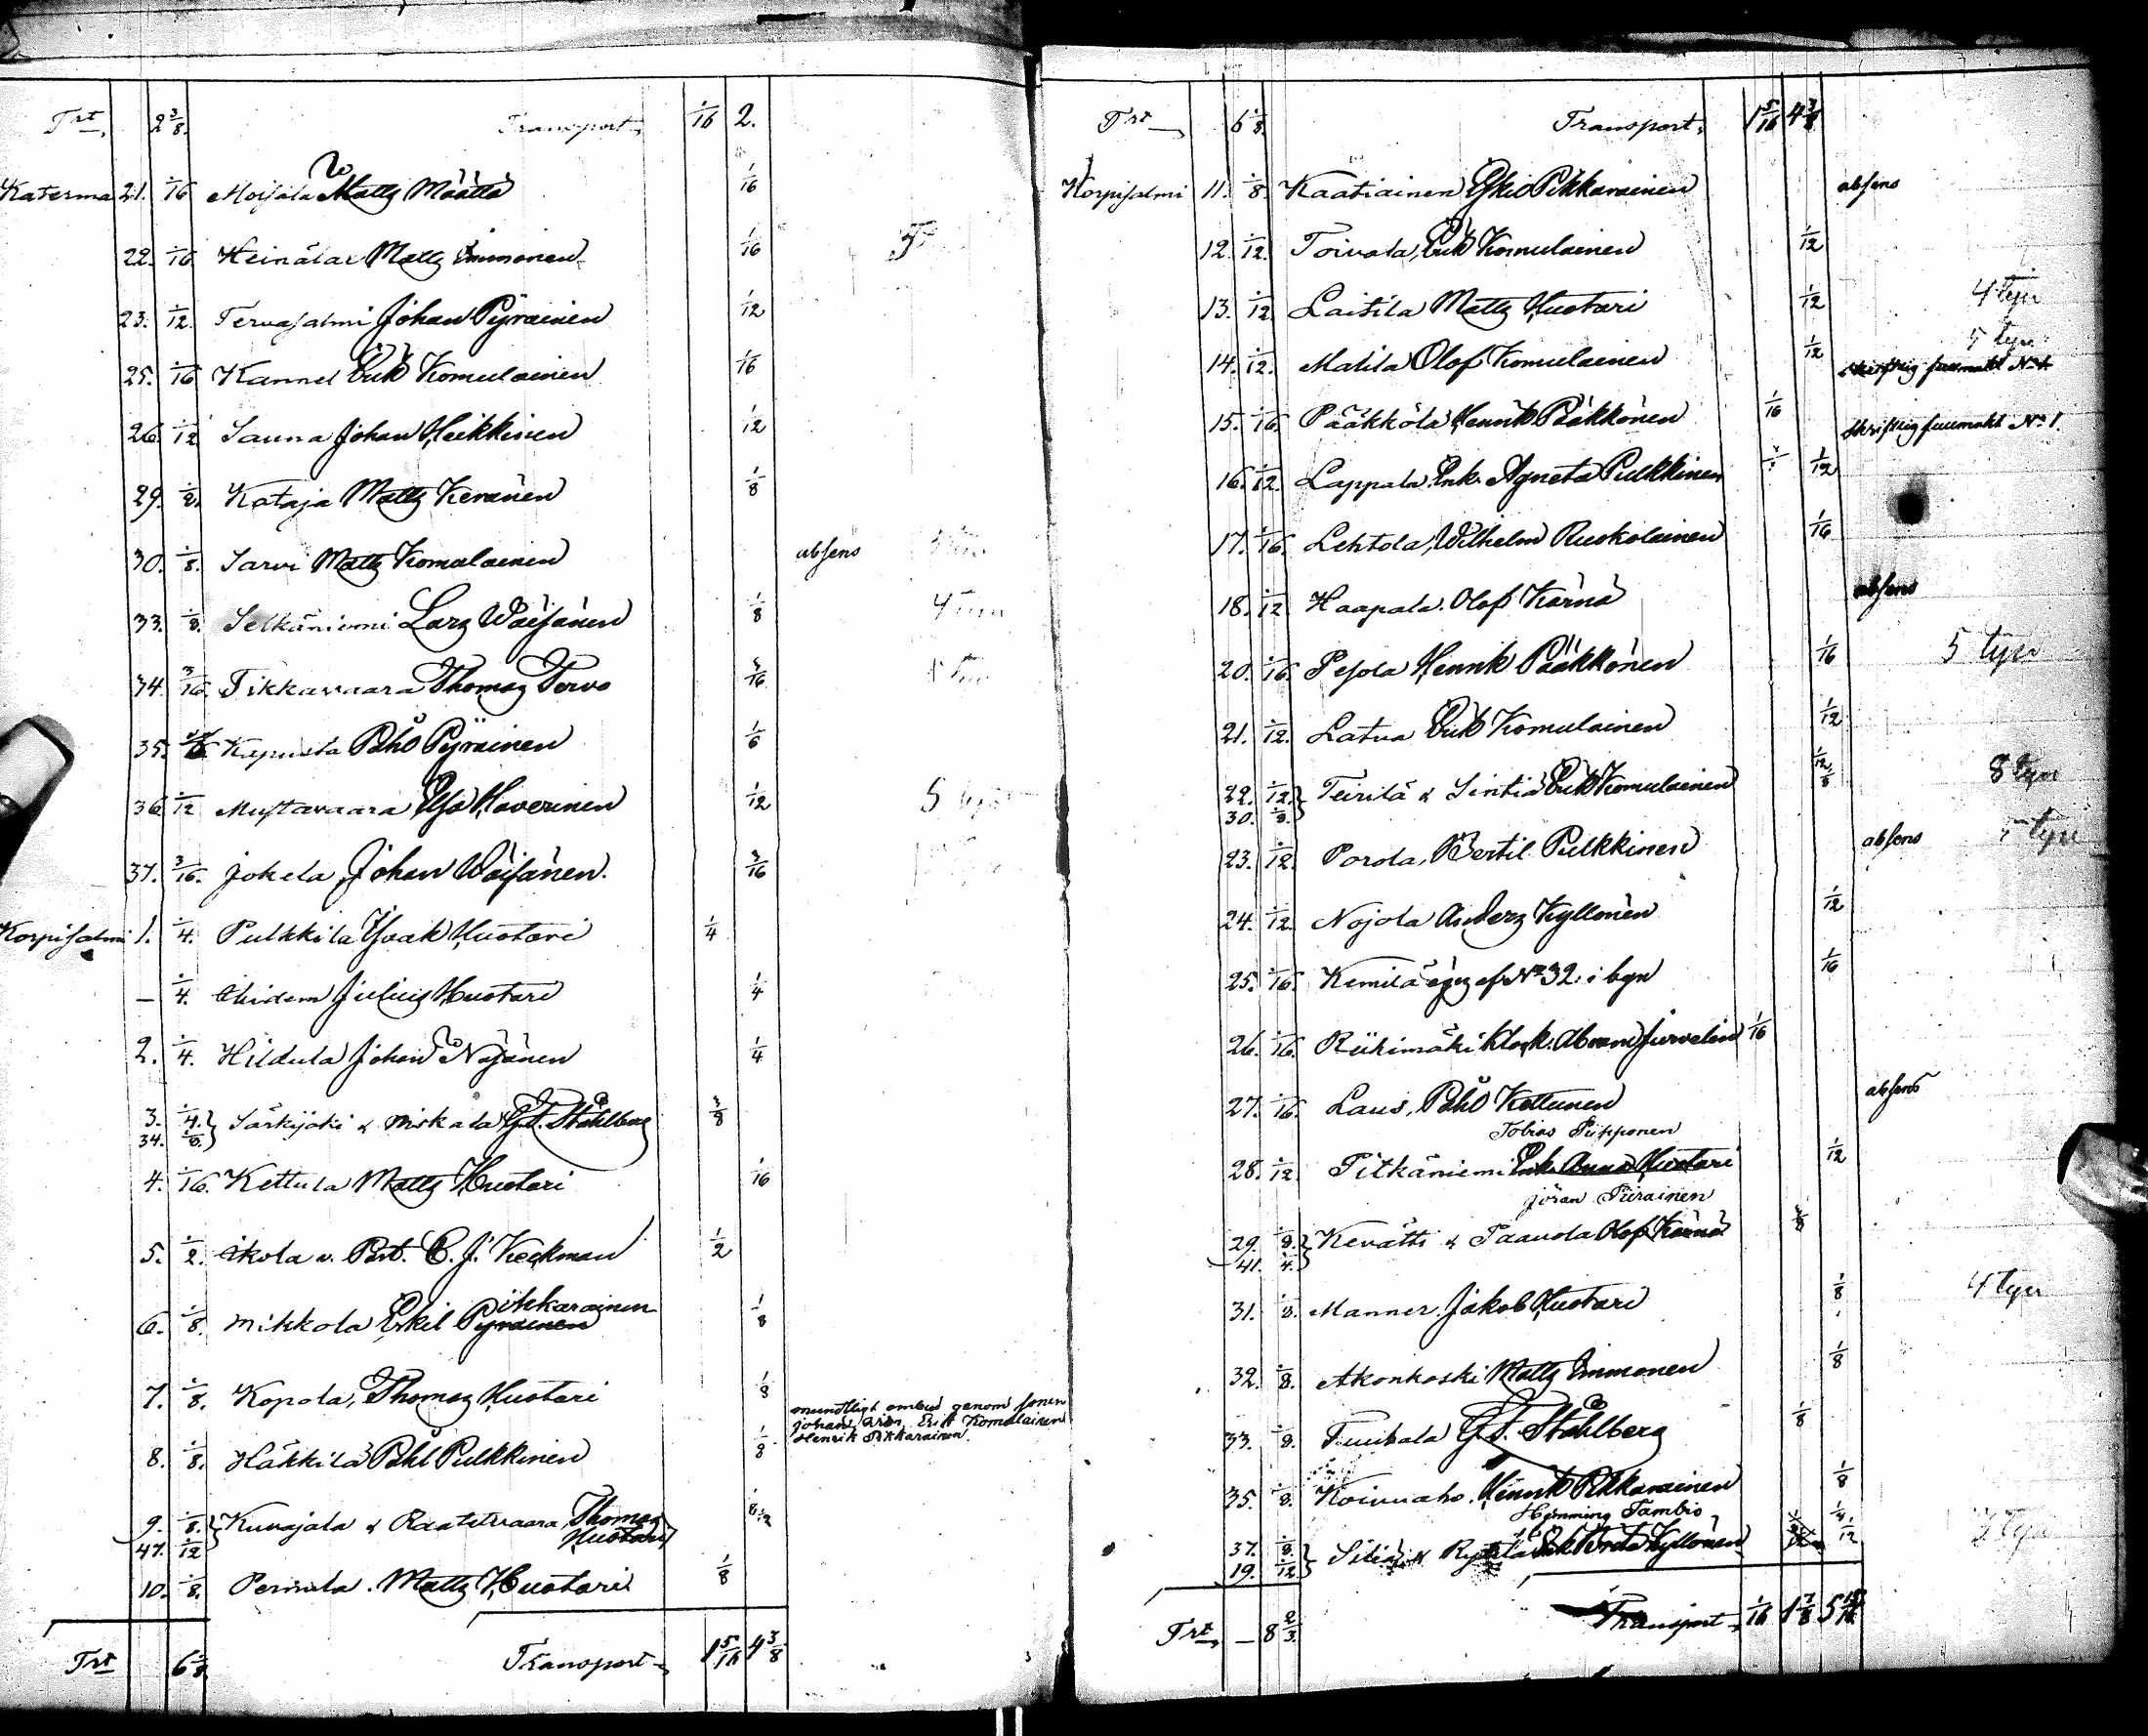 Trt 2 3/8. Transport 1/16 2.
Katerma 21. 1/16 Moisala Matts Määttä 1/16
22. 1/16 Heinälax Matts Immonen 1/16
23. 1/12 Tervasalmi Johan Pyräinen 1/12
25. 1/16 Kannel Erik Komulainen 1/16
26. 1/12 Sauna Johan Heikkinen 1/12
29. 1/8. Kataja Matts Keränen 1/8
30. 1/8. Sarvi Matts Komulainen absens
33. 1/8. Selkäniemi Lars Wäisänen 1/8 4 tyu
34. 3/16. Tikkavaara Thomas Tervo 3/16
35. 1/6 Kapusta Påhl Pyräinen 1/6
36. 1/12 Mustavaara Elias Haverinen 1/12 5
37. 3/16. Jokela Johan Wäisänen. 3/16
Korpisalmi 1. 1/4. Pulkkila Isaak Huotari 1/4
— 1/4. Ibidem Julius Huotari 1/4
2. 1/4. Hildula Johan Nojänen 1/4
3. 1/4. 34. 1/8. Särkijoki & Miskala G. F. Ståhlberg 3/8
4. 1/16. Kettula Matts Huotari 1/16
5. 1/2. Ikola v. Past. C. J. Keckman 1/2
ikkarainen
6. 1/8. Mikkola Eskil Pyräinen 1/8
7. 1/8. Kopola, Thomas Huotari 1/8
mundtligt ombud genom sonen
Johan, Erik Komulainen
Henrik Pikkarainen.
8. 1/8. Häkkilä Påhl Pulkkinen 1/8
9. 1/8. 47. 1/12 Kuvajala & Raatetvaara, Thomas Huotari 1/8 1/12
10. 1/8. Perttula. Matts Huotari 1/8
Trt 6 1/8 Transport 1 5/16 4 3/8
Trt 6 1/8. Transport. 1 5/16 4 3/8
Korpisalmi 11. 1/8. Kaatiainen Eskil Pikkarainen absens
12. 1/12. Toivola, Erik Komulainen 1/12
13. 1/12 Laitila Matts Huotari 1/12 4 tyu
14. 1/12. Matila Olof Komulainen 1/12 5 tyu
skriftlig fullmakt No 1
15. 1/16. Pääkkölä Henrik Pääkkönen 1/16 skriftlig fullmakt No 1.
16. 1/12. Lappala. Enk. Agneta Pulkkinen 1/12
17. 1/16. Lehtola, Wilhelm Ruokolainen 1/16
18. 1/12 Haapala. Olof Kärnä absens
20. 1/16. Pesola Henrik Pääkkönen 1/16 5 tyu
21. 1/12. Latva Erik Komulainen 1/12
22. 1/12. 30. 1/8. Teirilä & Sintiä Erik Komulainen 1/12 1/8 8 tyu
23. 1/12. Porola, Bertil Pulkkinen absens 5 tyu
24. 1/12. Nojola Anders Kyllönen 1/12
25. 1/16. Kemilä äges af No 32. i byn 1/16
26. 1/16. Riihimäki klock. Abram Jurvelin 1/16
27. 1/16. Laus, Påhl Kettunen absens
Tobias Piipponen
28. 1/12. Pitkäniemi Enk. Anna Huotari 1/12
Jöran Piirainen
29. 1/8. 41. 1/4. Kevätti & Paavola Olof Kärnä 3/8
31. 1/8. Manner. Jakob Huotari 1/8 4 tyu
32. 1/8. Akonkoski Matts Immonen 1/8
33. 1/8. Tuukala G. F. Ståhlberg 1/8
35. 1/8. Koivuaho. Henrik Pikkarainen 1/8
Hemming Tambio
37. 1/8. 19. 1/12 Enk Kyllönen 1/12
Trt — 8 2/3 Transport 1/16 1 7/8 5